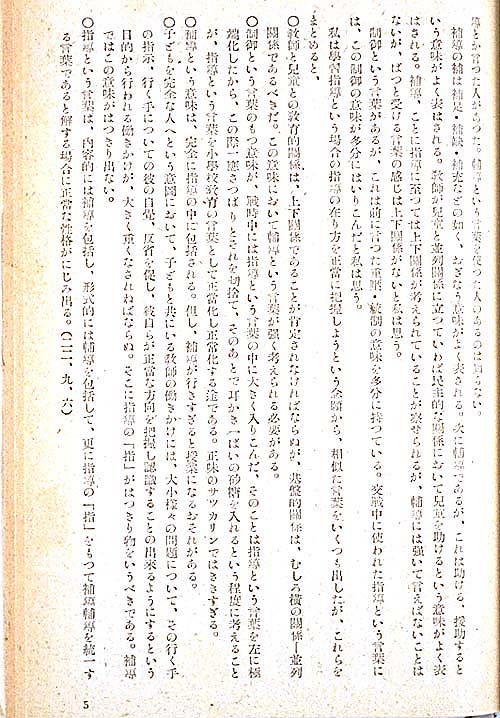 導とか言つた人があつた。補導という言葉を使つた人のあるのは知らない。
補導の補は補足・補缺・補充などの如く、おぎなう意味がよく表される。次に輔導であるが、これは助ける、援助すると
いう意味がよく表はされる。教師が兒童と並列關係に立つていわば民主的な關係において兒童を助けるという意味がよく表
はされる。補導、ことに指導に至つては上下關係が考えられていることが察せられるが、輔導には强いて言えばないことは
ないが、ぱつと受ける言葉の感じは上下關係がないと私は思う。
制御という言葉があるが、これは前に言つた重壓・統制の意味を多分に持つている。交戰中に使われた指導という言葉に
は、この制御の意味が多分にはいりこんだと私は思う。
私は學習指導という場合の指導の在り方を正常に把握しようという念願から、相似た言葉をいくつも出したが、これらを
まとめると、
○教師と兒童との敎育的關係は、上下關係であることが肯定されなければならぬが、基盤的關係は、むしろ橫の關係―並列
關係であるべきだ。この意味において輔導という言葉が强く考えられる必要がある。
○制御という言葉のもつ意味が、戰時中には指導という言葉の中に大きく入りこんだ、そのことは指導という言葉を左に極
端化したから、この際一應さつぱりとそれを切捨て、そのあとで耳かき一ぱいの砂糖を入れるという程度に考えること
が、指導という言葉を小學校敎育の言葉として正常化し正常化する途である。正味のサツカリンではきさすぎる。
○補導という意味は、完全に指導の中に包括される。但し、補導が行きすぎると授業になるおそれがある。
○子どもを完全な人へという意圖において、子どもと共にいる敎師の働きかけには、大小樣々の問題について、その行く手
の指示、行く手についての彼の自覺、反省を促し、彼自らが正常な方向を把握し認識することの出來るようにするという
目的から行われる働きかけが、大きく重くなされねばならぬ。そこに指導の「指」がはつきり物をいうべきである。補導
ではこの意味がはつきり出ない。
○指導という言葉は、內容的には補導を包括し、形式的には輔導を包括して、更に指導の「指」をもつて補導輔導を統一す
る言葉であると解する場合に正常な性格がにじみ出る。(二二、九、六)
5